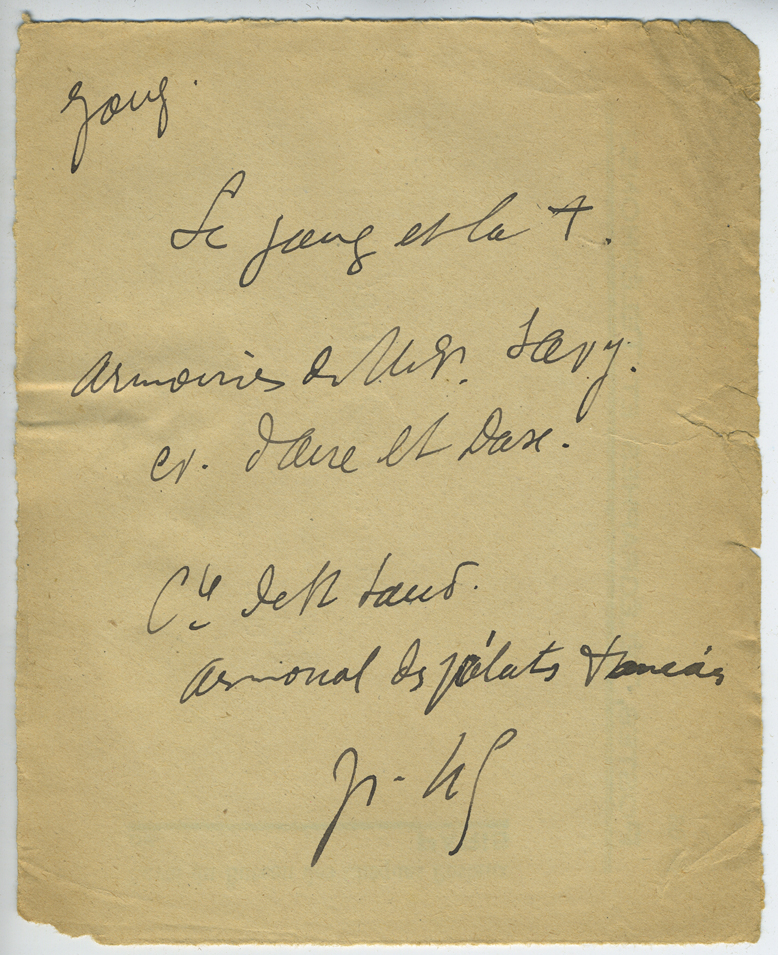 Joug.
Le joug et la +.
Armoiries de Mgr. Savy.
ev. d'Aire et Dax.
Cte de St Saud.
Armorial des prélats français
p.